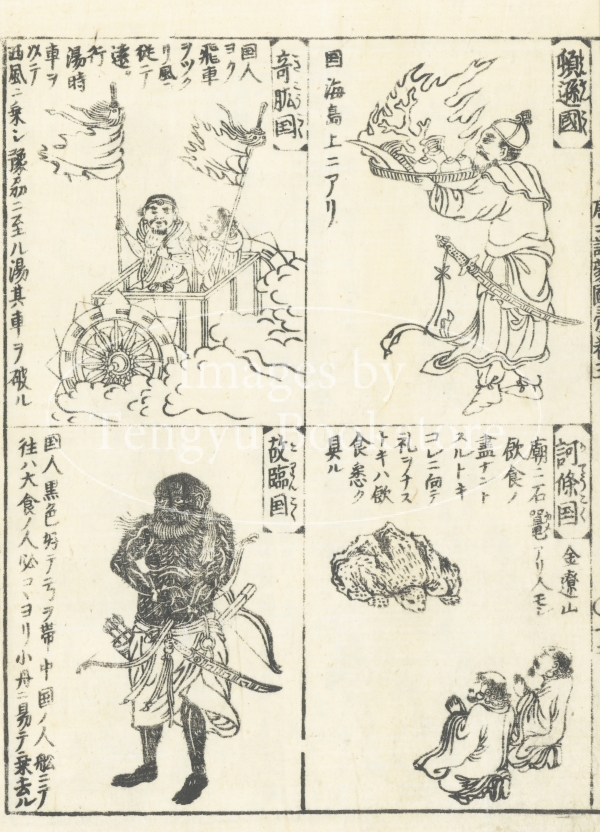 頓遜國
国海島上ニアリ
奇肱国
国人
ヨク
飛車
ヲツク
リ風ニ
従テ
遠
行
湯時
車ヲ
以テ
西風ニ乗シ豫州ニ至ル湯其車ヲ破ル
訶條国
金遼山
廟ニ石鼈アリ人モシ
飲食ノ
盡ナント
スルトキ
コレニ向テ
礼ヲナス
トキハ飲
食悉ク
具ル
故臨国
こりんこく
国人黒色好テ弓ヲ帯中国ノ人舩ニテ
往ハ大食ノ人必コヽヨリ小舟ニ易テ乗去ル
Images by
Tengyu Bookstore